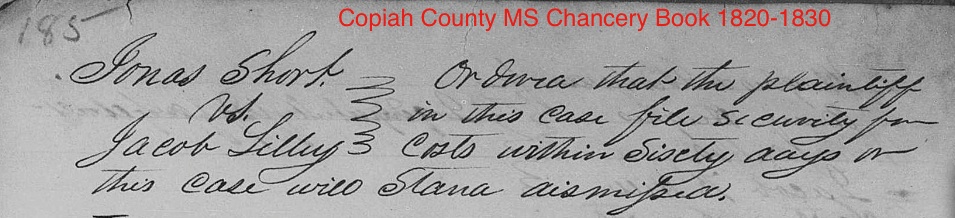 185
Copiah County MS Chancery Book 1820-1830
Jonas Short. Ordered that the plaintiff
vs. in this case file security for
Jacob Lilley Costs within Sixty days or
this case will Stand dismissed.